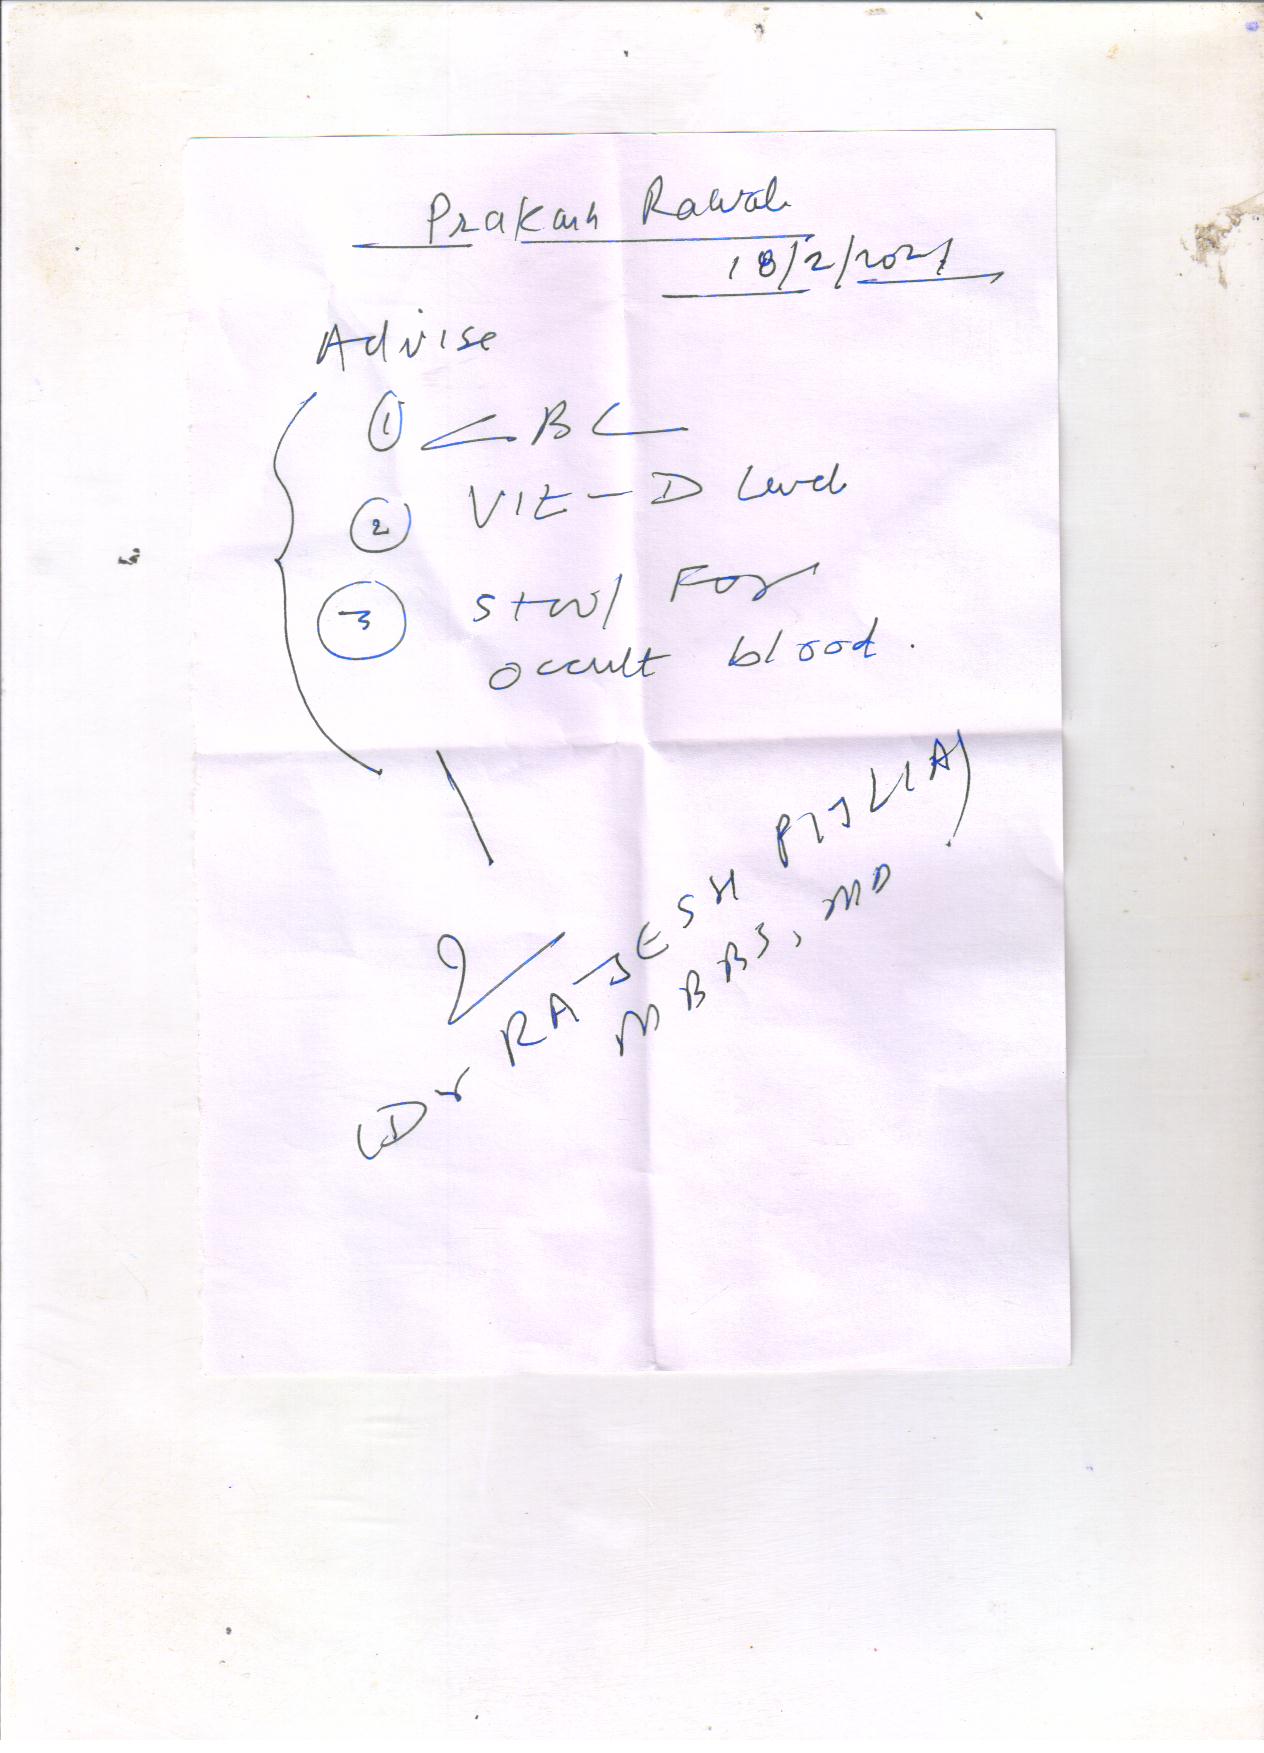 Prakash Rawal
18/2/2021
Advise
① CBC
② VIT-D Level
③ Stool For
occult blood.
(Dr RAJESH PIJLIA)
MBBS, MD